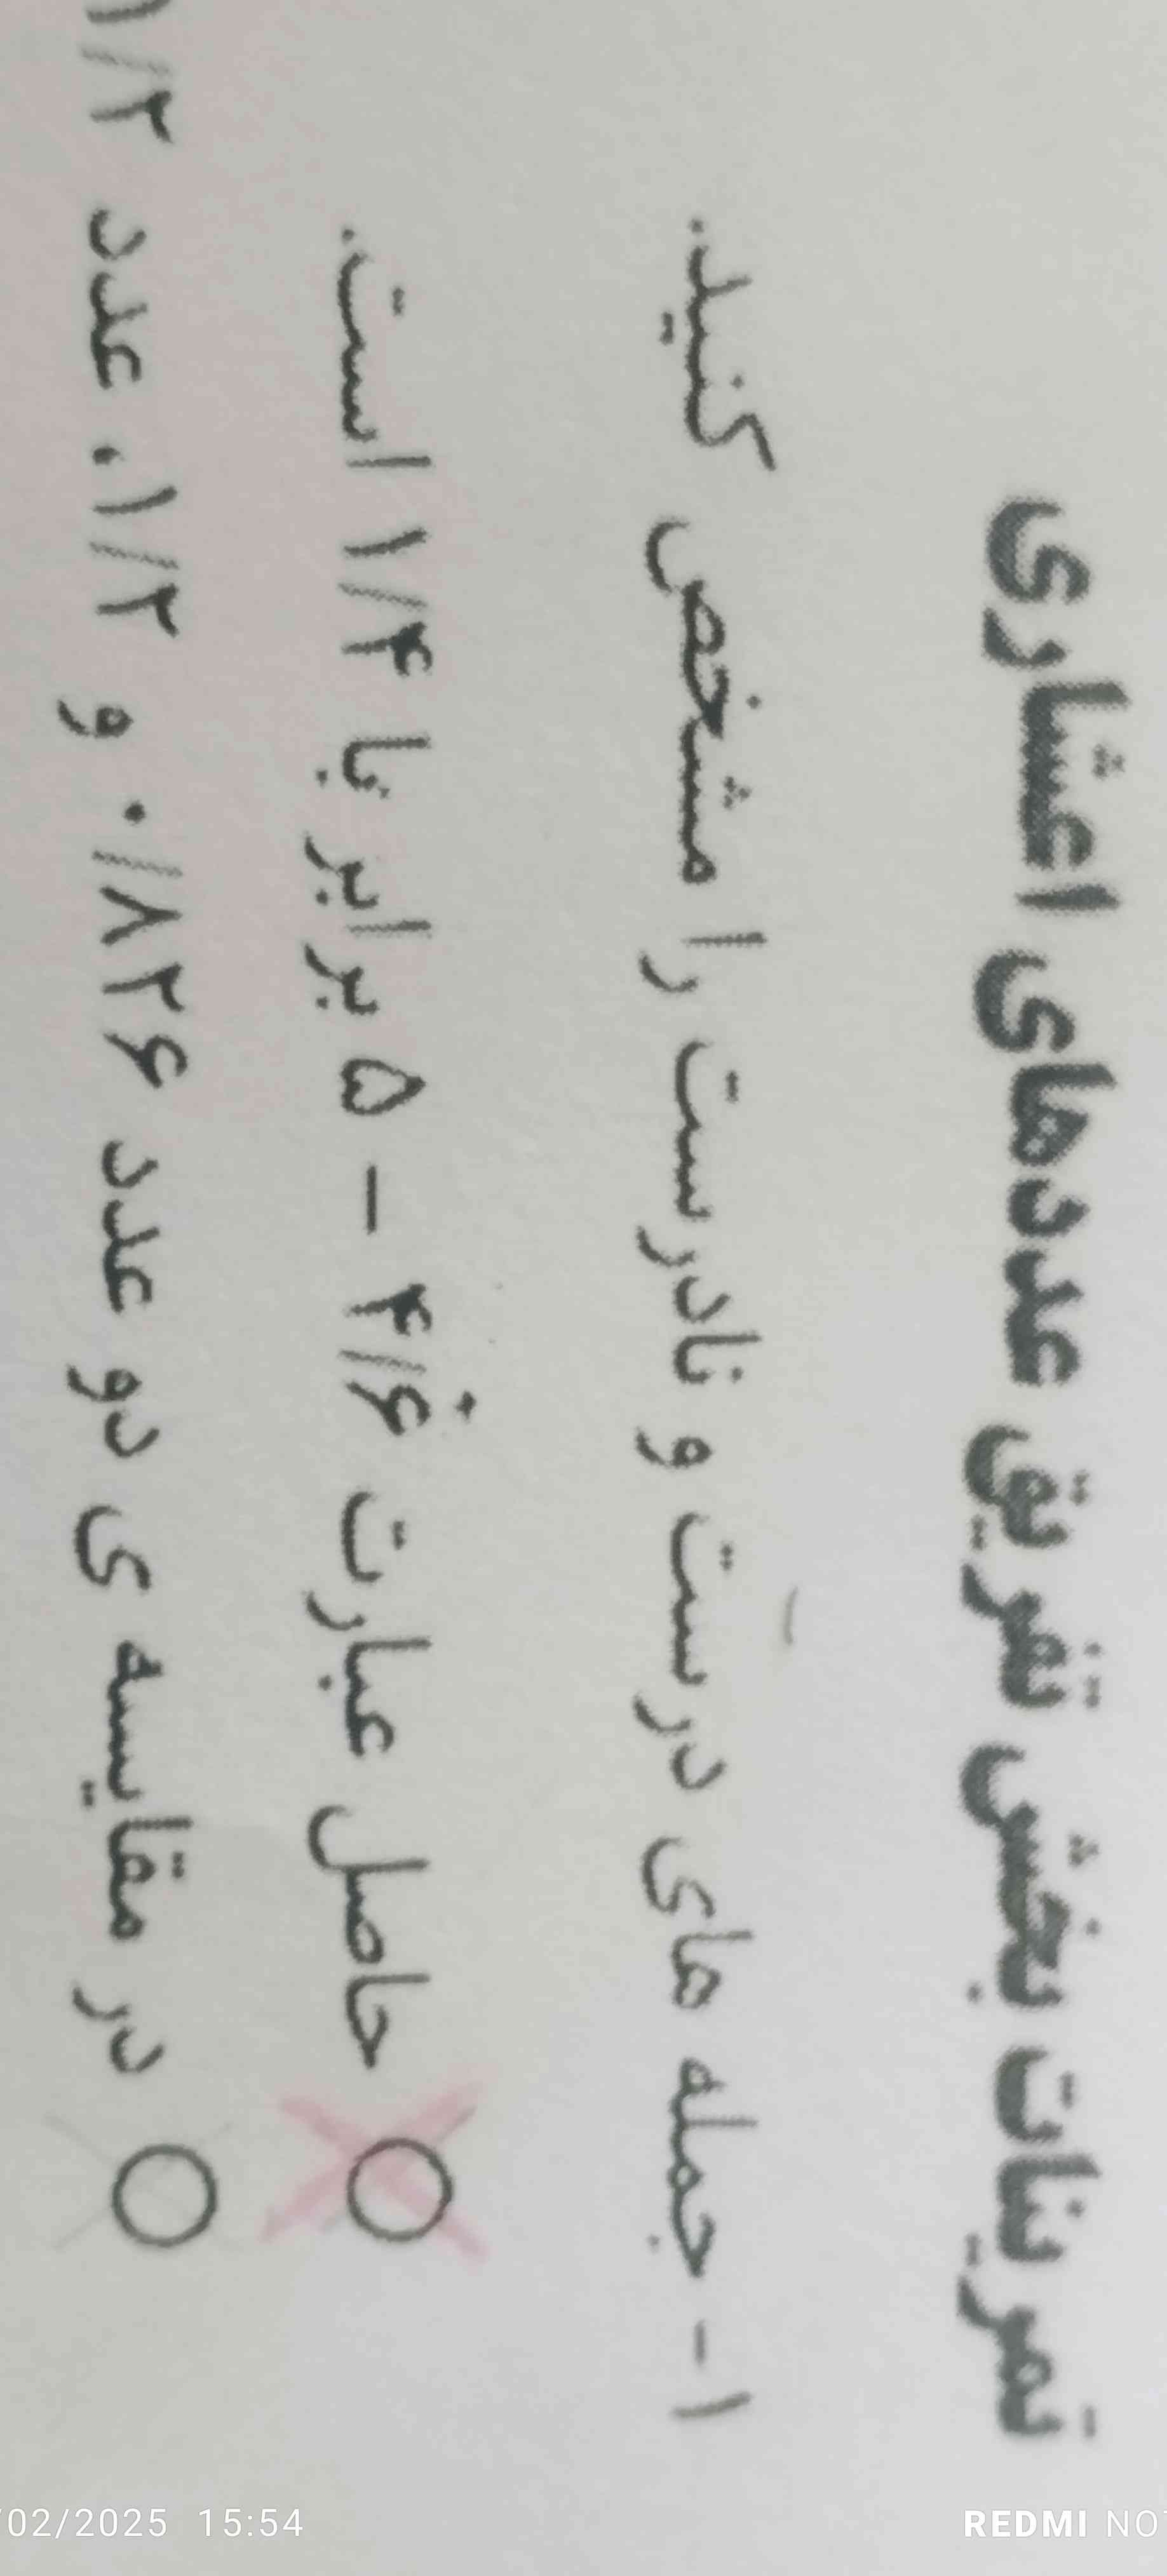 تمرینات بخش تفریق عددهای اعشاری
۱- جمله های درست و نادرست را مشخص کنید.
حاصل عبارت ۴/۶ - ۵ برابر با ۱/۴ است.
در مقایسه ی دو عدد ۰/۸۲۶ و ۱/۲، عدد ۱/۲
02/2025 15:54
REDMI NO